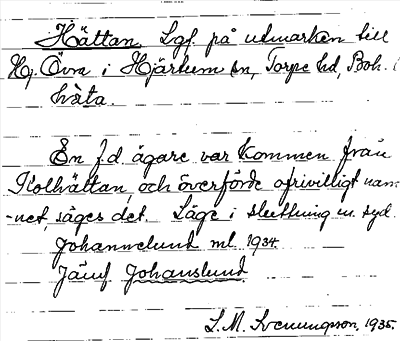 Hättan. Lgf. på utmarken till
Hg. Övra i Hjärtum sn, Torpe hd, Boh. l
håta.
En f.d. ägare var kommen från
Kolhättan, och överförde ofrivilligt nam-
-net, säges det. Läge i sluttning m. syd.
Johannelund ml. 1934.
Jämf Johanslund.
S. M. Svenungsson, 1935.